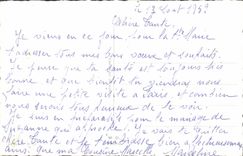 le 13 Août 195
Chère Tante,
Je viens en ce jour pour la Ste Marie
t'adresser tous mes bons vœux et souhaits.
Je pense que ta santé est toujours très
bonne et que bientôt tu viendras nous
faire une petite visite à Paris et combien
nous serons tous heureux de te voir.
Je suis en
qui approche. Je vais te quitter
chère Tante et je t'embrasse bien affectueusement
ainsi que ma cousine